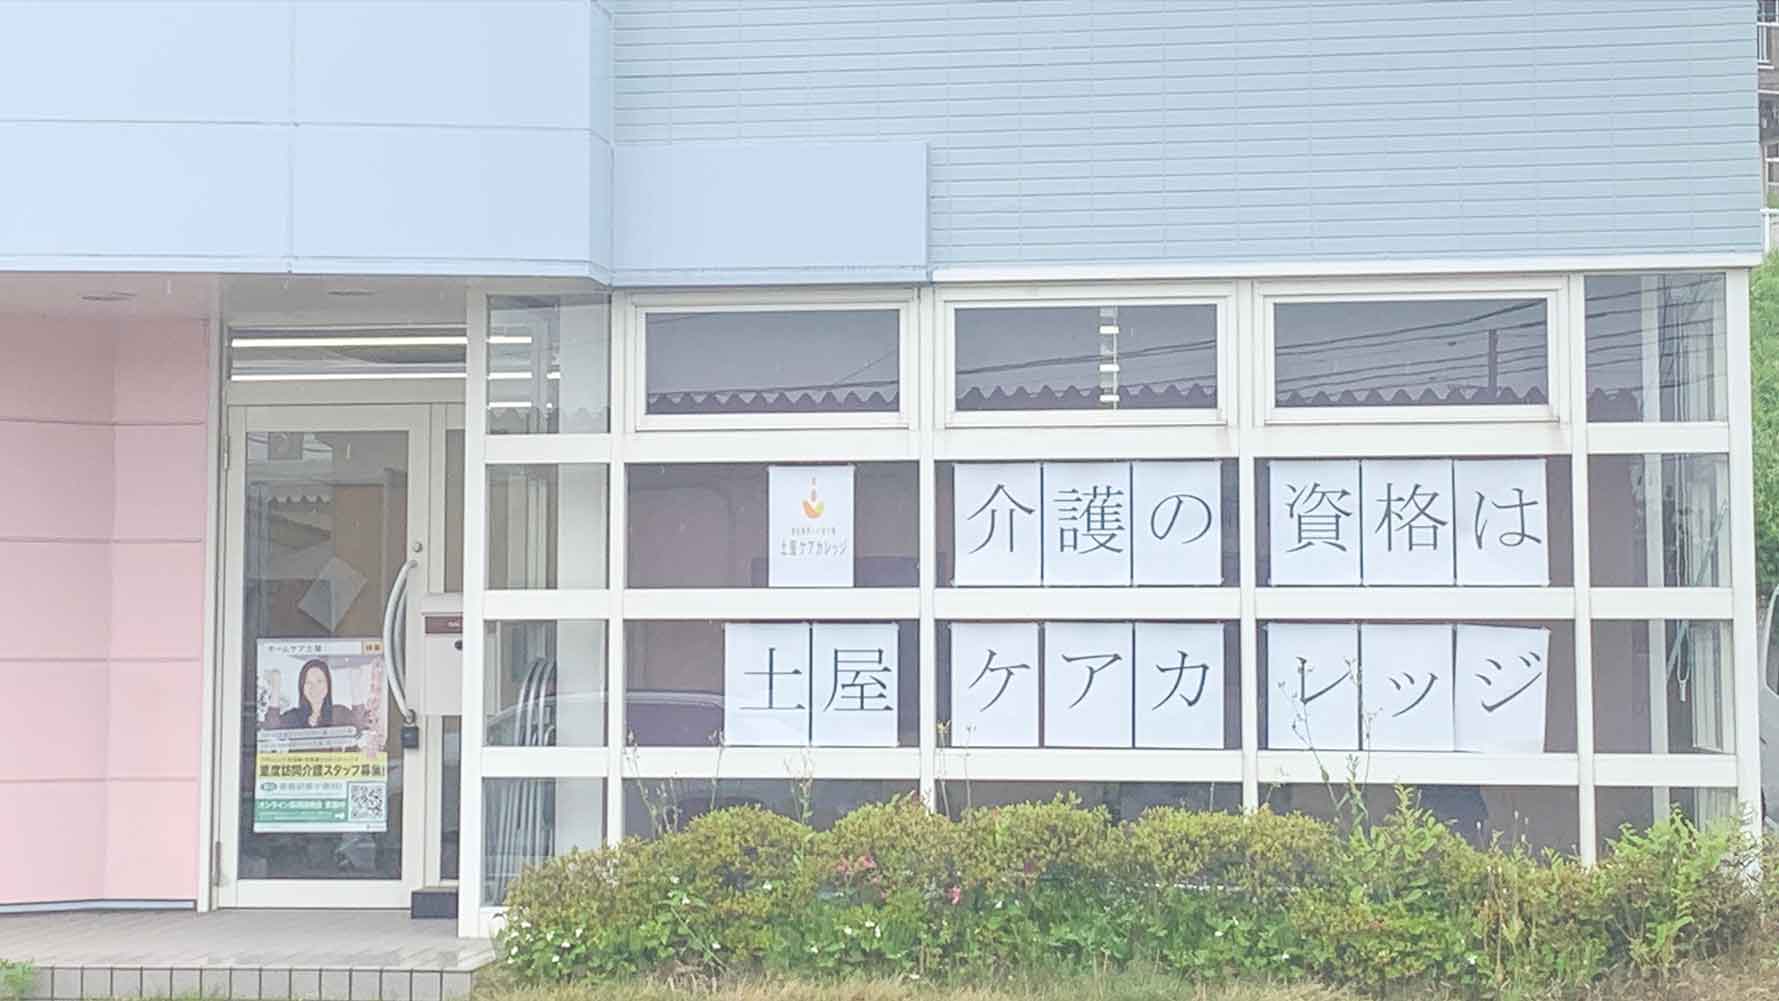 土屋ケアカレッジ
介護の資格は
土屋ケアカレッジ
ホームケア土屋
重度訪問介護スタッフ募集!